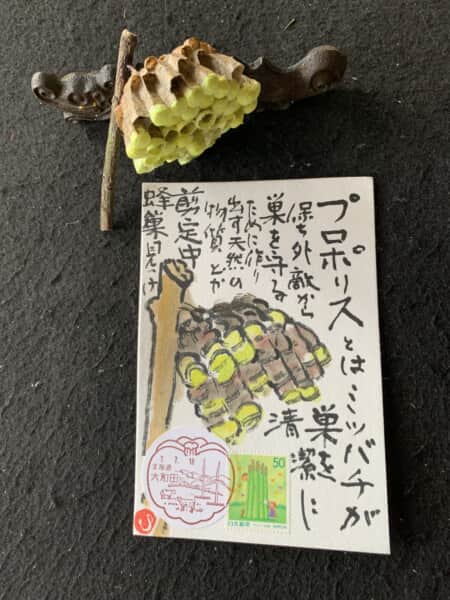 プロポリス
とは ミツバチが
巣を
清潔に
保ち外敵から
巣を守る
ために作り
出す天然の
物質とか
剪定中
蜂巣見つけ
7.7.11
大和田
50
日本郵便
NIPPON